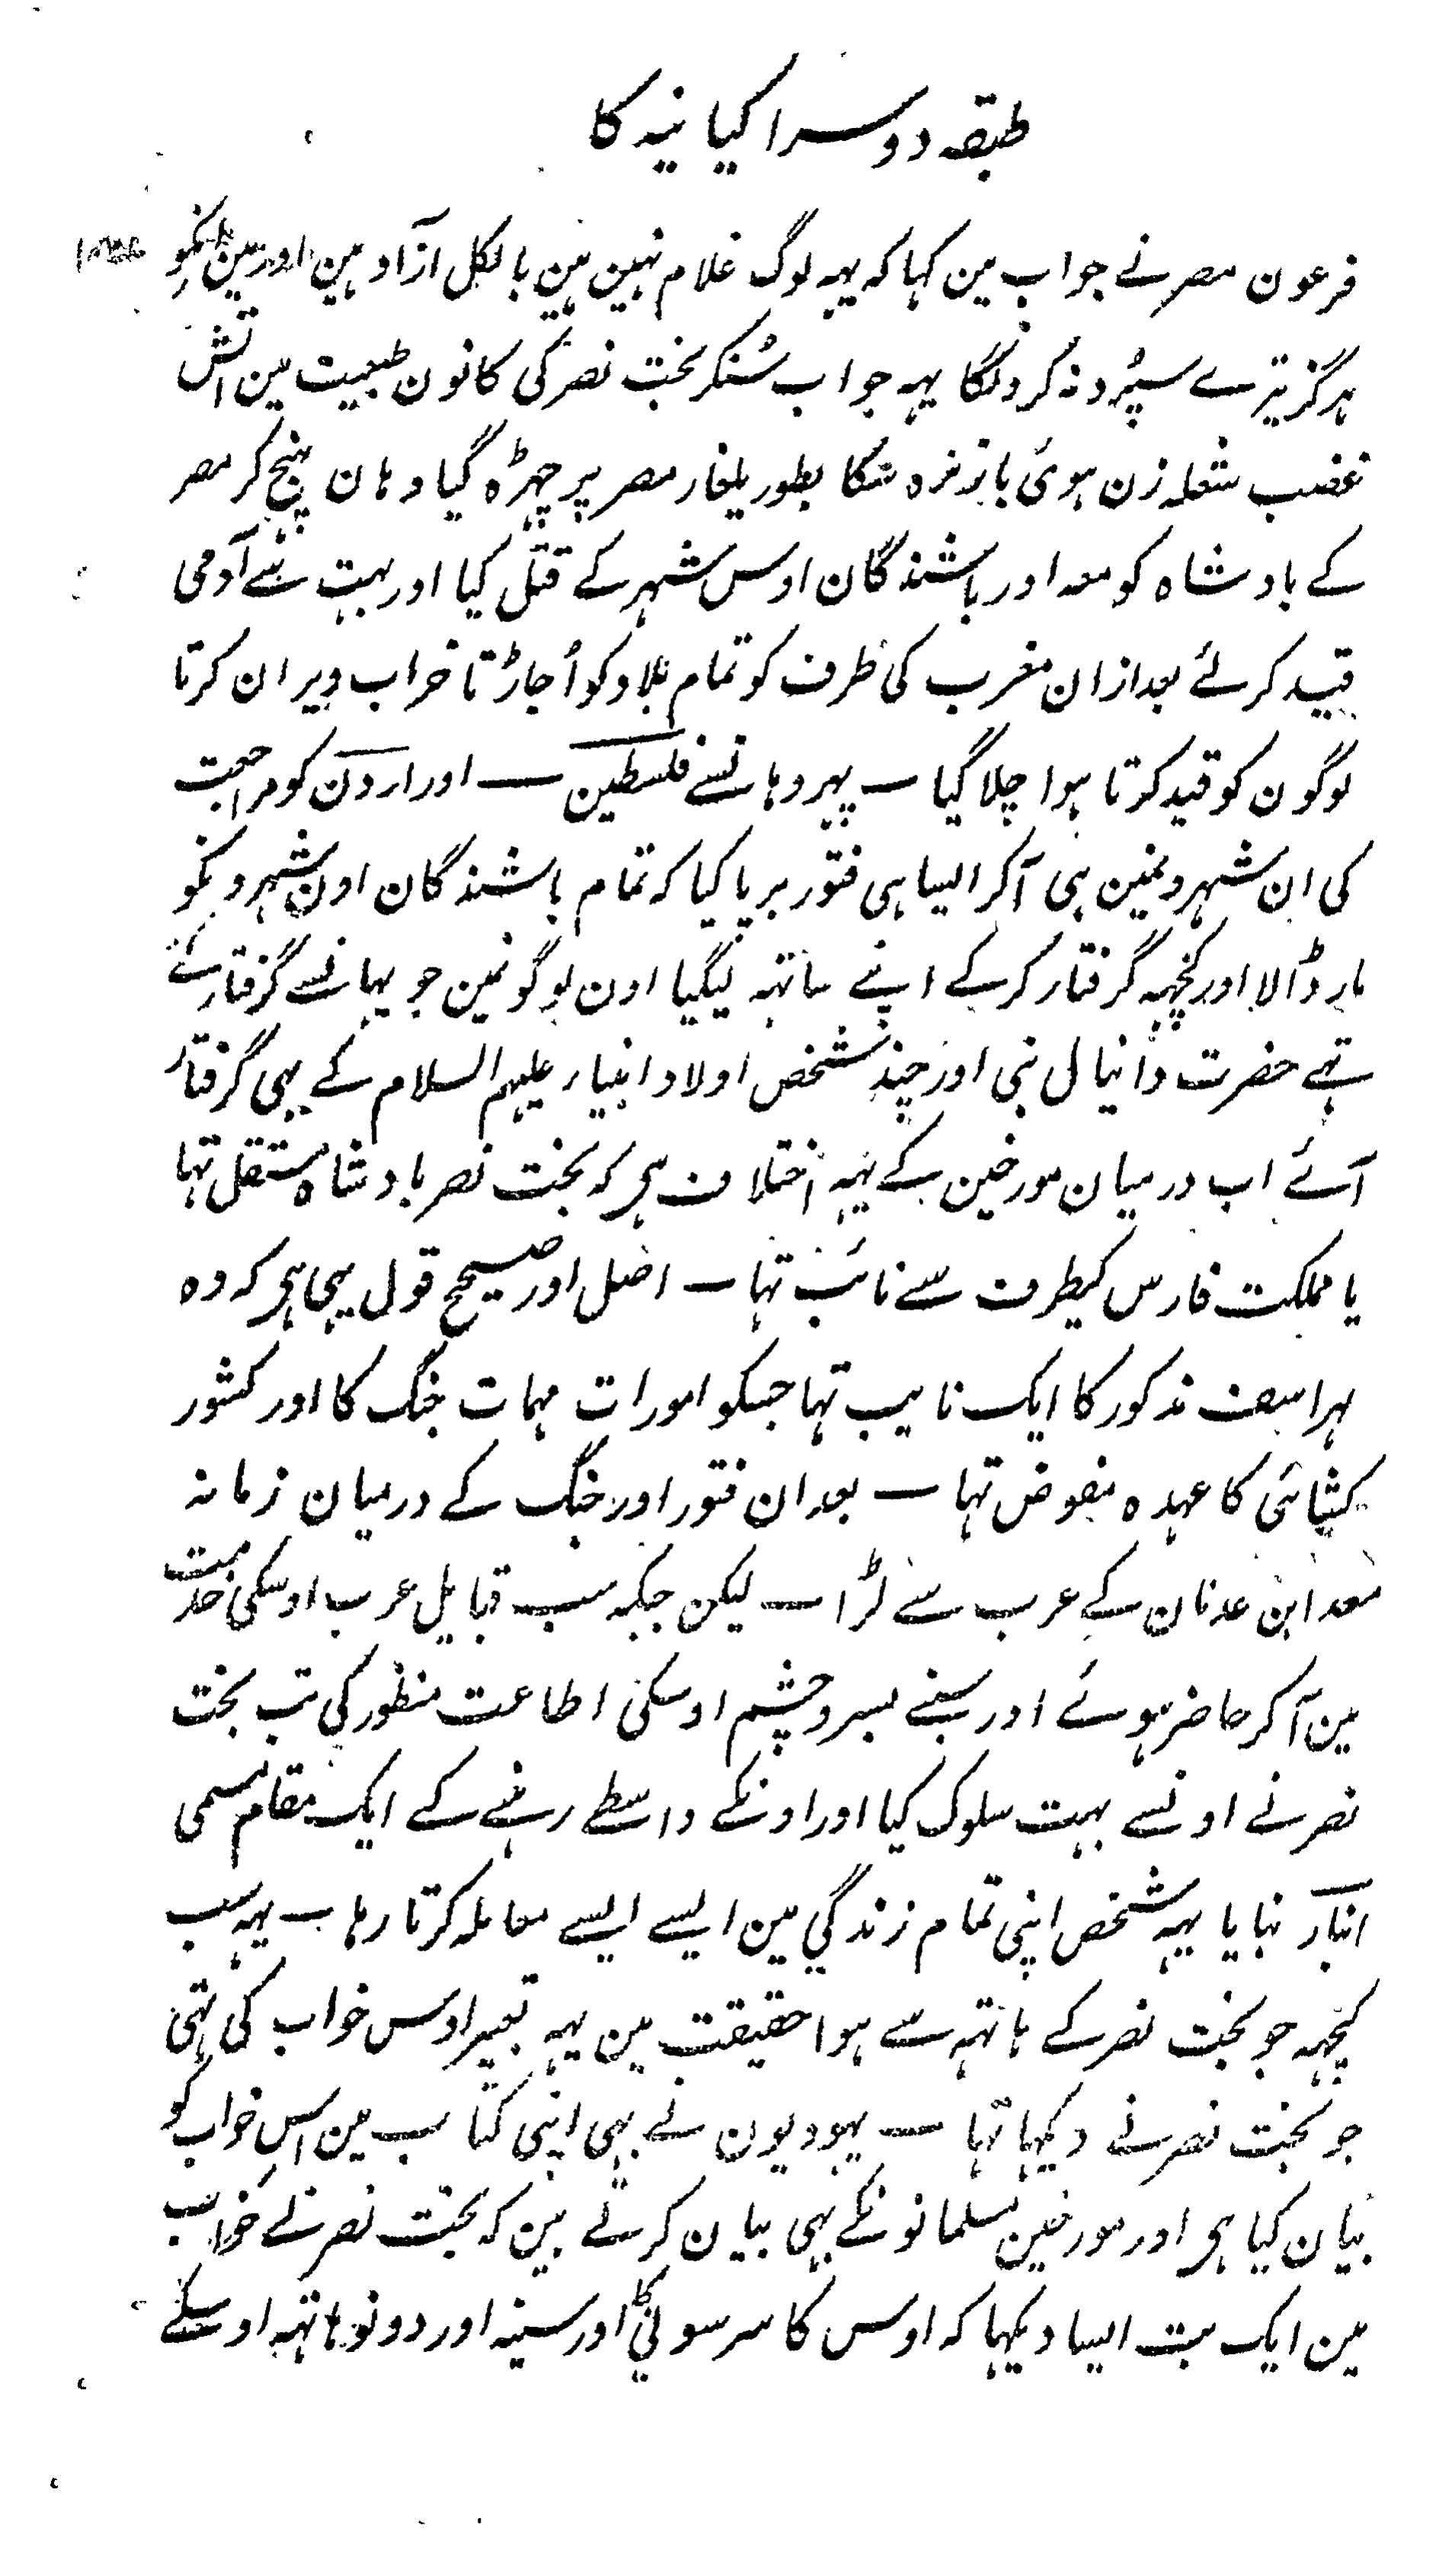 طبقہ دوسرا کیانیہ کا
فرعون مصر نے جواب مین کہا کہ یہہ لوگ غلام نہین ہین بالکل آزاد ہین اور مین انکو
ہرگز تیرے سپُرد نہ کرونگا یہہ جواب سُنکر بخت نصر کی کانون طبیعت مین آتش
غضب شعلہ زن ہوئی بطور یلغار مصر پر چہڑہ گیا وہان پہنچ کر مصر
کے بادشاہ کو معہ اور باشندگان اوس شہر کے قتل کیا اور بہت سے آدمی
قید کر لئے بعد ازان مغرب کی طرف کو تمام بلاد کو اُجاڑتا خراب ویران کرتا
لوگون کو قید کرتا ہوا چلا گیا ۔ پہر وہانسے فلسطین ۔ اور اردن کو مراجعت
کی ان شہرونمین بہی آکر ایسا ہی فتور برپا کیا کہ تمام باشندگان اون شہرونکو
مار ڈالا اور کچہہ گرفتار کرکے اپنے ساتہہ لیگیا اون لوگونمین جو یہانسے گرفتار کئے
تہے حضرت دانیال نبی اور چند شخص اولاد انبیاء علیہم السلام کے بہی گرفتار
آئے اب درمیان مورخین کے یہہ اختلاف ہی کہ بخت نصر بادشاہ مستقل تہا
یا مملکت فارس کیطرف سے نائب تہا ۔ اصل اور صحیح قول یہی ہی کہ وہ
لہراسف مذکور کا ایک نایب تہا جسکو امورات مہمات جنگ کا اور کشور
کشائی کا عہدہ مفوض تہا ۔ بعد ان فتور اور جنگ کے درمیان زمانہ
معد ابن عدنان کے عرب سے لڑا ۔ لیکن جبکہ سب قبایل عرب اوسکی خدمت
مین آکر حاضر ہوئے اور سبنے بسر و چشم اوسکی اطاعت منظور کی تب بخت
نصر نے اونسے بہت سلوک کیا اور اونکے واسطے رہنے کے ایک مقام مسمی
انبار بنایا یہہ شخص اپنی تمام زندگی مین ایسے ایسے معاملہ کرتا رہا ۔ یہہ سب
کچہہ جو بخت نصر کے ہاتہہ سے ہوا حقیقت مین یہہ تعبیر اوس خواب کی تہی
جو بخت نصر نے دیکہا تہا ۔ یہودیون نے بہی اپنی کتاب مین اس خواب کو
بیان کیا ہی اور مورخین مسلمانونکے بہی بیان کرتے ہین کہ بخت نصر نے خواب
مین ایک بت ایسا دیکہا کہ اوس کا سر سونیکا اور سینہ اور دونو ہاتہہ اوسکے